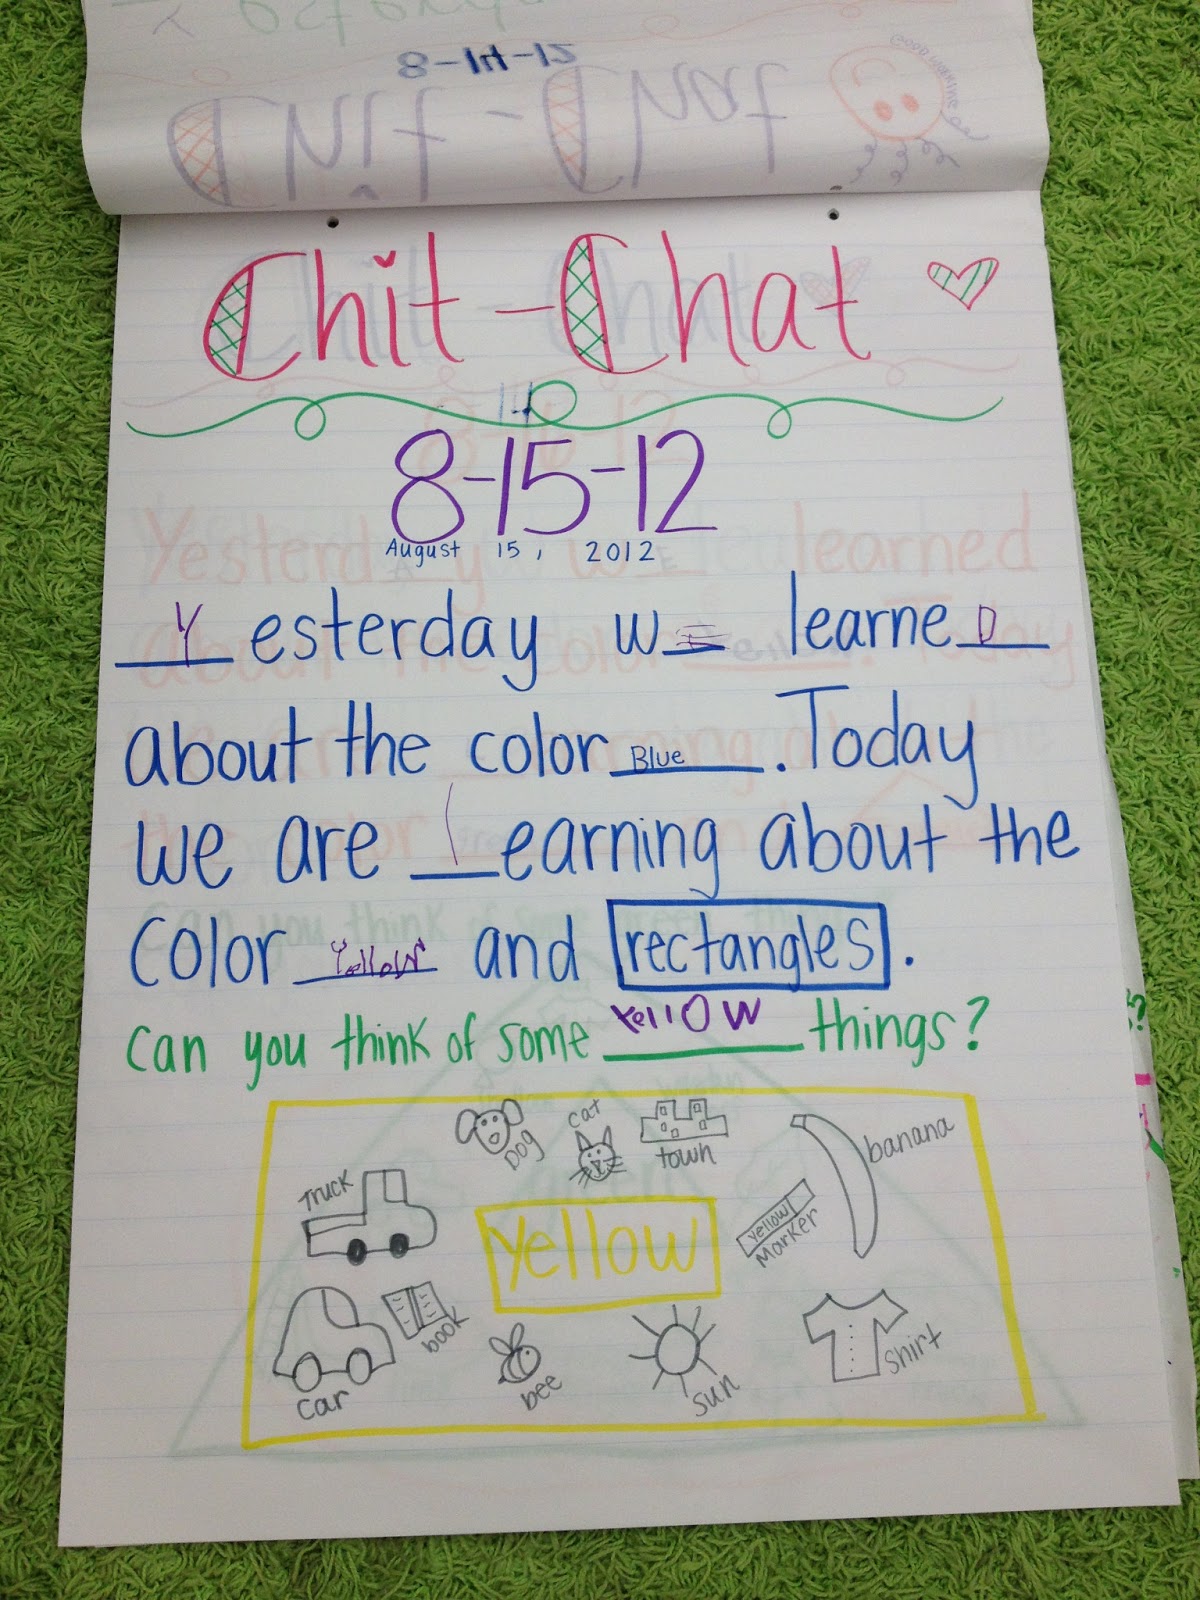 8-14-12
Chit-Chat
GOOD MORNING
Chit-Chat
14
8-15-12
August 15, 2012
Yesterday wE learneD
about the color Blue. Today
we are learning about the
color Yellow and rectangles.
can you think of some YellOW things?
Dog
cat
town
banana
Truck
Yellow
yellow
Marker
book
car
bee
sun
shirt